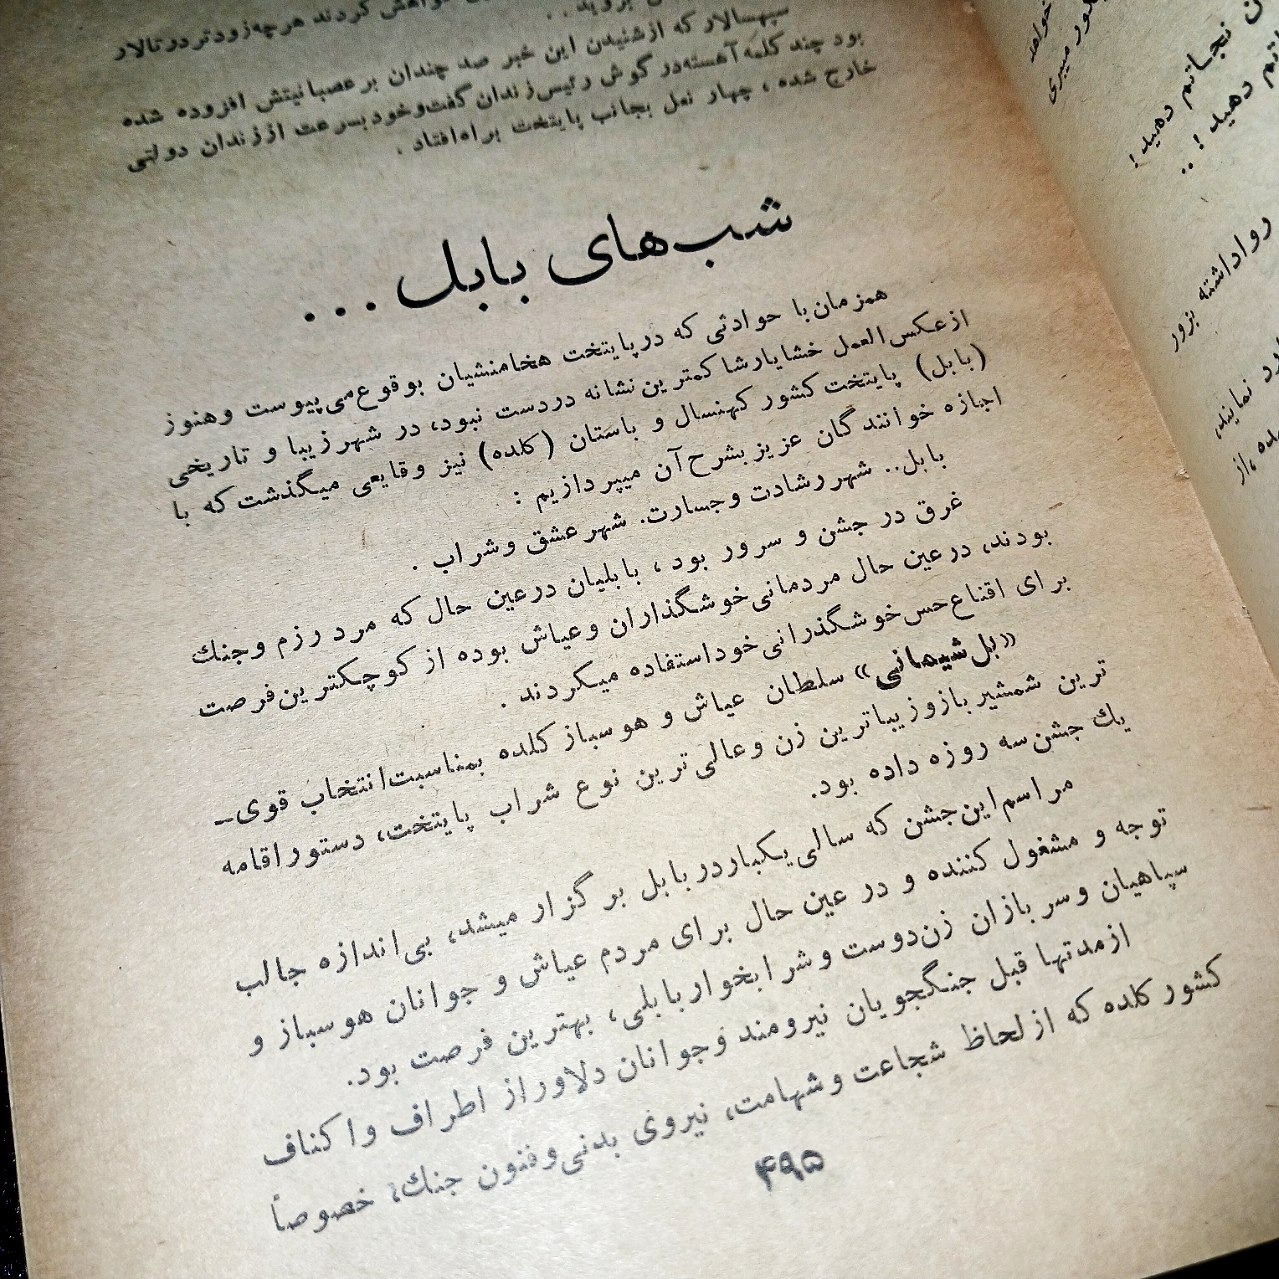 خواهش کردند هرچه‌زودتر در تالار
بروید..
سپهسالار که ازشنیدن این خبر صد چندان برعصبانیتش افزوده شده
بود چند کلمه آهسته در گوش رئیس زندان گفت و خود بسرعت از زندان دولتی
خارج شده ، چهار نعل بجانب پایتخت براه افتاد .
شب‌های بابل...
همزمان با حوادثی که در پایتخت هخامنشیان بوقوع می‌پیوست و هنوز
ازعکس‌العمل خشایارشا کمترین نشانه دردست نبود، در شهر زیبا و تاریخی
(بابل) پایتخت کشور کهنسال و باستان (کلده) نیز وقایعی میگذشت که با
اجازه خوانندگان عزیز بشرح آن میپردازیم :
بابل.. شهر رشادت وجسارت. شهر عشق وشراب .
غرق در جشن و سرور بود ، بابلیان درعین حال که مرد رزم وجنك
بودند، درعین حال مردمانی خوشگذاران وعیاش بوده از کوچکترین فرصت
برای اقناع حس خوشگذرانی خود استفاده میکردند .
«بل شیمانی» سلطان عیاش و هوسباز کلده بمناسبت انتخاب قوی-
ترین شمشیر باز وزیباترین زن وعالی‌ترین نوع شراب پایتخت، دستور اقامه
یك جشن سه روزه داده بود.
مراسم این جشن که سالی یکبار در بابل برگزار میشد، بی‌اندازه جالب
توجه و مشغول کننده و در عین حال برای مردم عیاش و جوانان هوسباز و
سپاهیان وسربازان زن‌دوست وشرابخوار بابلی، بهترین فرصت بود.
ازمدتها قبل جنگجویان نیرومند وجوانان دلاور از اطراف واکناف
کشور کلده که از لحاظ شجاعت وشهامت، نیروی بدنی وفنون جنك، خصوصاً
۴۹۵
خواهد
میبری
نجاتم دهید!
دهید!..
رواداشته بزور
نمایند،
،از